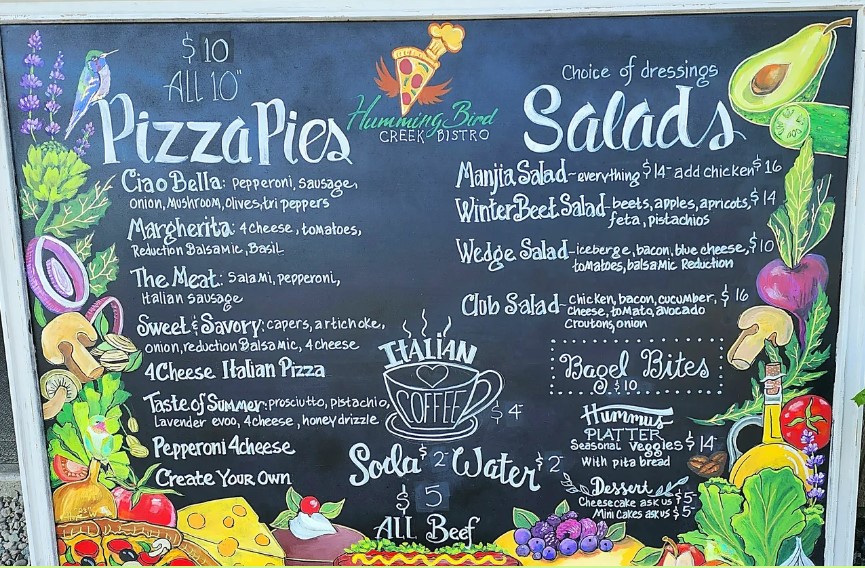 $10
ALL 10"
Pizza Pies
Ciao Bella: Pepperoni, Sausage,
Onion, Mushroom, olives, tri peppers
Margherita: 4 cheese, tomatoes,
Reduction Balsamic, Basil
The Meat: Salami, pepperoni,
Italian sausage
Sweet & Savory: capers, artichoke,
onion, reduction Balsamic, 4 cheese
4Cheese Italian Pizza
Taste of Summer: prosciutto, pistachio,
Lavender evoo, 4 cheese, honey drizzle
Pepperoni 4cheese
Create Your Own
Humming Bird
CREEK BISTRO
ITALIAN
COFFEE $4
Soda $2 Water $2
$5
ALL Beef
Choice of dressings
Salads
Manjia Salad - everything $14 - add chicken $16
Winter Beet Salad - beets, apples, apricots, $14
feta, pistachios
Wedge Salad - iceberge, bacon, blue cheese, $10
tomatoes, balsamic Reduction
Club Salad - chicken, bacon, cucumber, $16
cheese, tomato, avocado
Croutons, onion
Bagel Bites
$10
Hummus
PLATTER
Seasonal Veggies $14
With pita bread
Dessert
Cheesecake ask us $5-
Mini Cakes ask us $5-